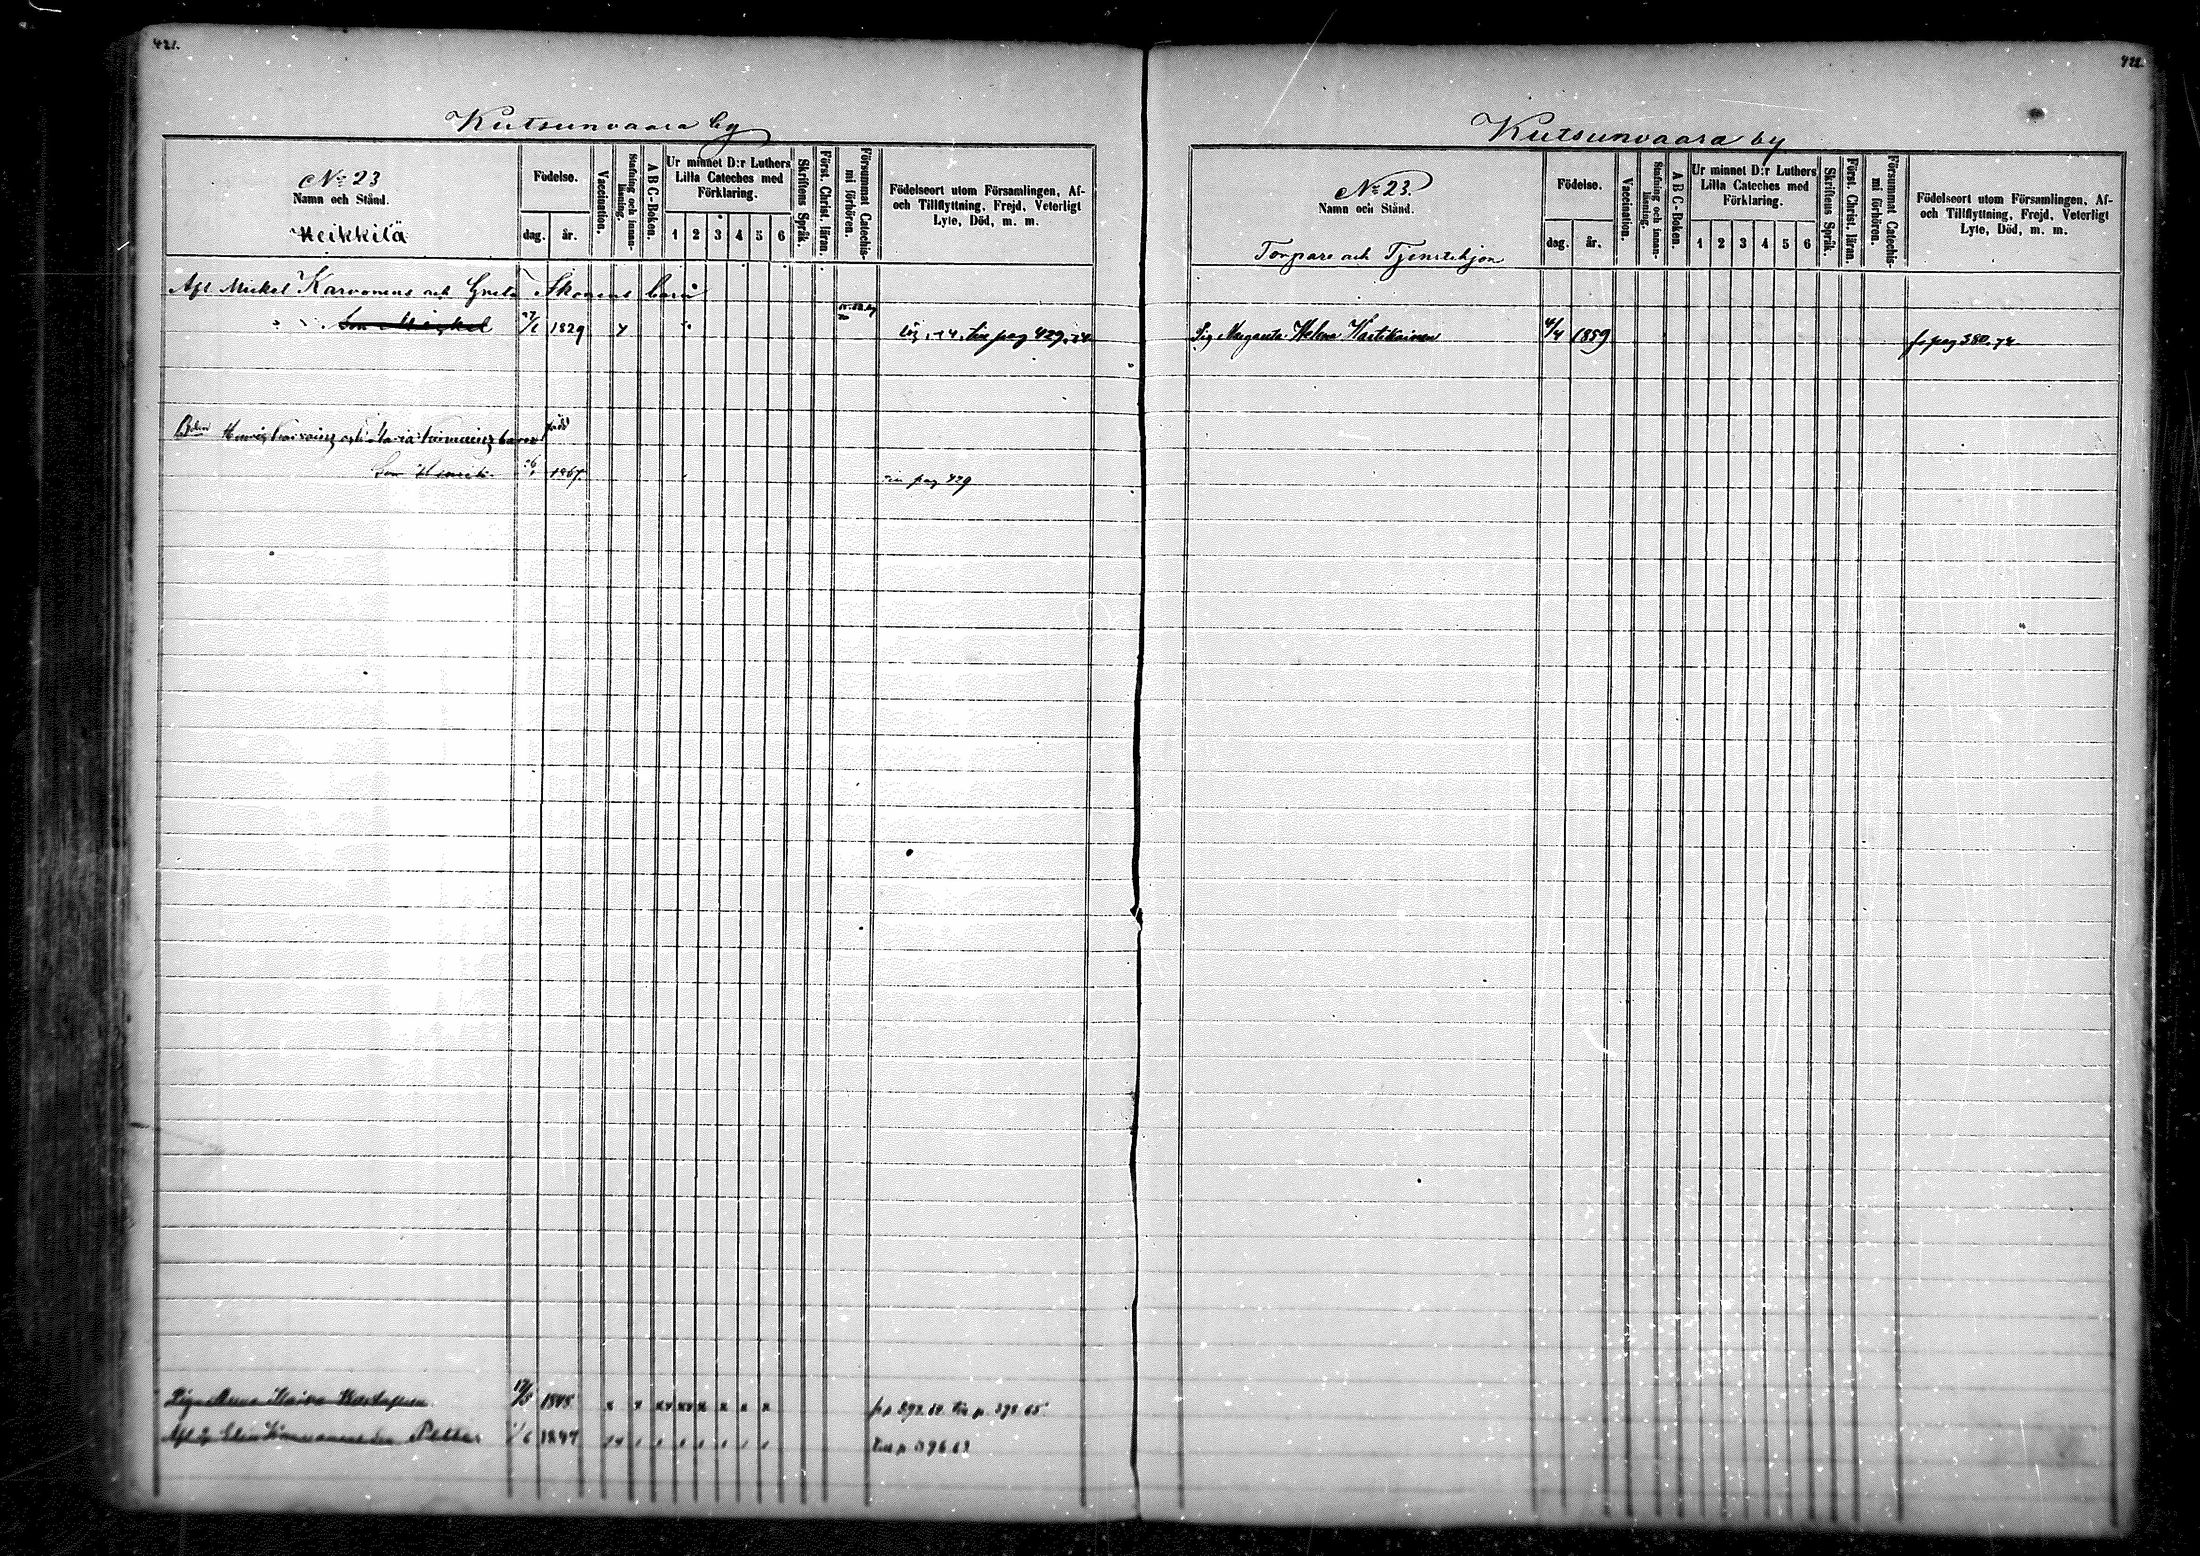 421.
Kutsunvaara by
No 23
Namn och Stånd.
Heikkilä
Födelse.
dag. år.
Vaccination.
Stafning och innan-
läsning.
A B C-Boken.
Ur minnet D:r Luthers
Lilla Cateches med
Förklaring.
1 2 3 4 5 6
Skriftens Språk.
Först. Christ. läran.
Försummat Catechis-
mi förhören.
Födelseort utom Församlingen, Af-
och Tillflyttning, Frejd, Veterligt
Lyte, Död, m. m.
Afl Mickel Karvonens och Greta Skonens barn
Son Mickel 1829 tin pag 429.74
Henric och Maria barn född
Son Henrik 1867. tin pag 429
Pig Anna Kaisa 17/5 1848 fr p 392. tin p. 392 65
Afl Son Petter 1/6 1847 tin p 396 69
422
Kutsunvaara by
No 23.
Namn och Stånd.
Torpare och Tjenstehjon
Födelse.
dag. år.
Vaccination.
Stafning och innan-
läsning.
A B C-Boken.
Ur minnet D:r Luthers
Lilla Cateches med
Förklaring.
1 2 3 4 5 6
Skriftens Språk.
Först. Christ. läran.
Försummat Catechis-
mi förhören.
Födelseort utom Församlingen, Af-
och Tillflyttning, Frejd, Veterligt
Lyte, Död, m. m.
Pig Margareta Helena Hartikainen 4/4 1859 fr pag 380.74